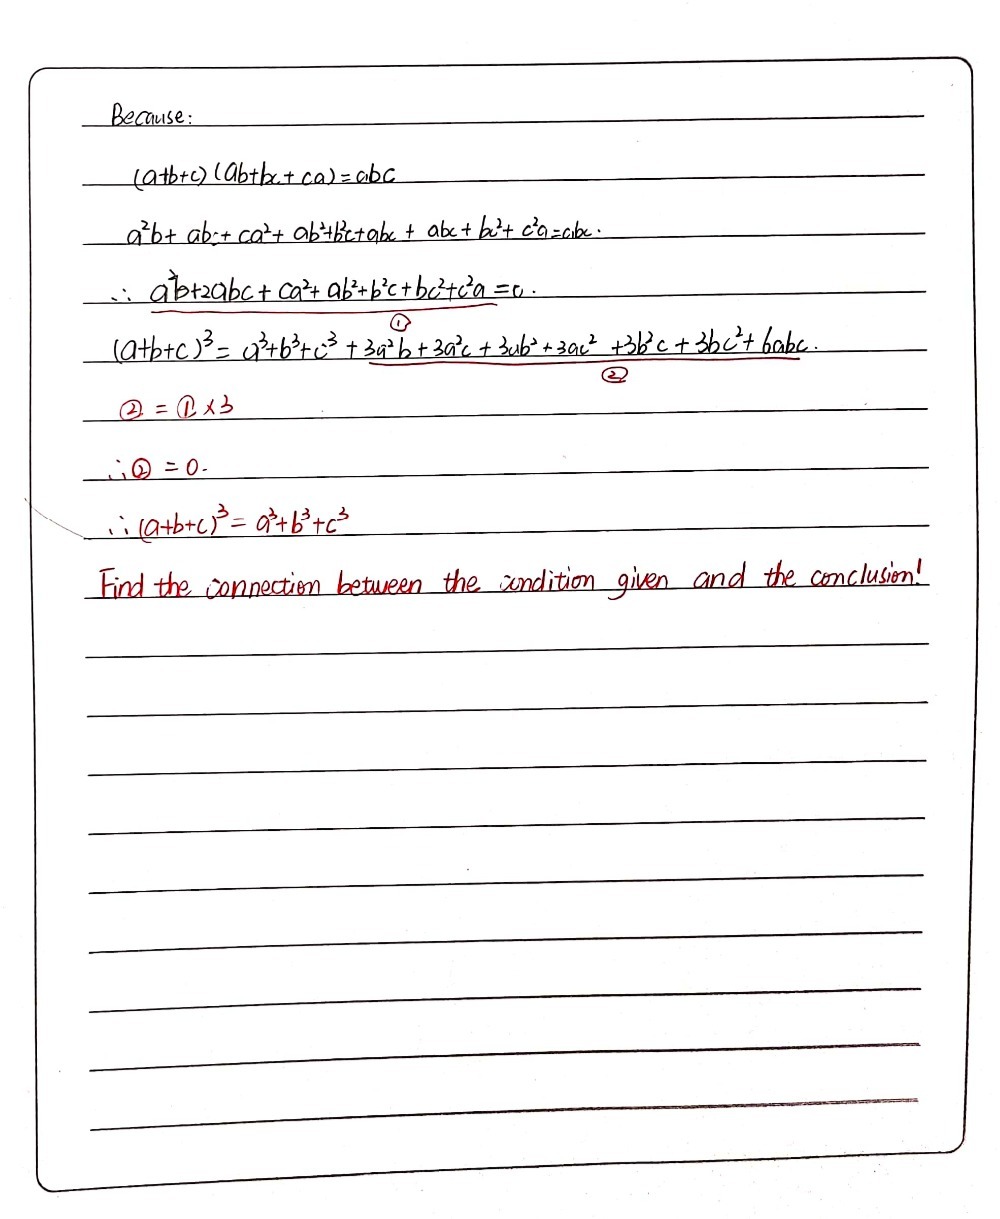 Because:
(a+b+c)(ab+bc+ca)=abc
a²b+abc+ca²+ab²+b²c+abc+abc+bc²+c²a=abc.
∴ a²b+2abc+ca²+ab²+b²c+bc²+c²a=0.
①
(a+b+c)³=a³+b³+c³+3a²b+3a²c+3ab²+3ac²+3b²c+3bc²+6abc.
②
②=①×3
∴②=0.
∴(a+b+c)³=a³+b³+c³
Find the connection between the condition given and the conclusion!